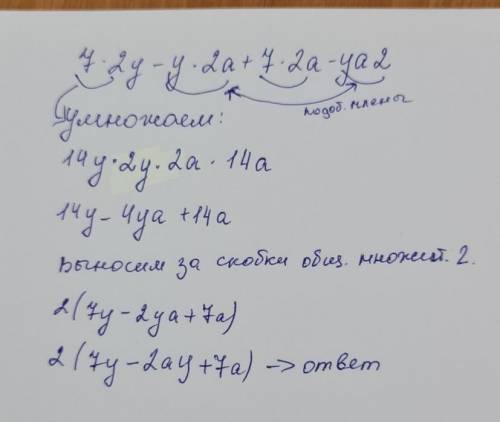 7 · 2y - y · 2a + 7 · 2a - ya2
подоб. члены
умножаем:
14y · 2y · 2a · 14a
14y - 4ya + 14a
выносим за скобки общ. множит. 2.
2(7y - 2ya + 7a)
2(7y - 2ay + 7a) -> ответ